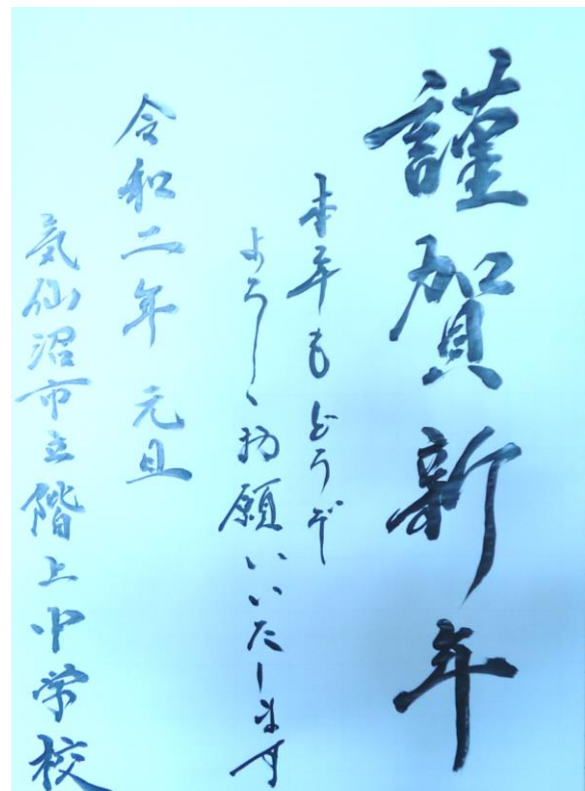 謹賀新年
本年もどうぞ
よろしくお願いいたします
令和二年 元旦
気仙沼市立階上中学校